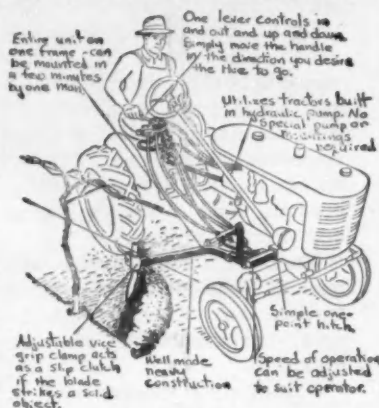 Entire unit on
one frame - can
be mounted in
a few minutes
by one man.
One lever controls in
and out and up and down
Simply move the handle
in the direction you desire
the Hoe to go.
Utilizes tractors built
in hydraulic pump. No
special pump or
required
Simple one-
point hitch
Adjustable vice
grip clamp acts
as a slip clutch
if the blade
strikes a solid
object.
Well made
heavy
construction
Speed of operation
can be adjusted
to suit operator.